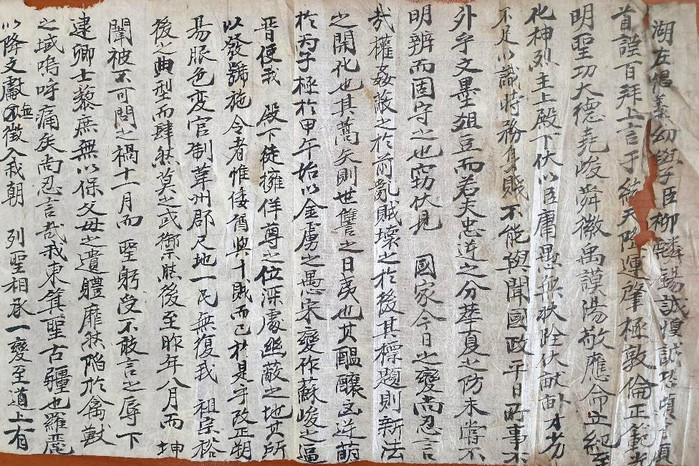 湖左倡義幼學臣柳麟錫誠惶誠恐頓首頓
首謹百拜上言于統天隆運肇極敦倫正範光
明聖功大德堯峻舜徽禹謨湯敬應命立紀至
化神烈主上殿下伏以臣庸愚無狀跧伏畎畝才劣
不足以識時務身賤不能與聞國政平日所事不
外乎文墨俎豆而若夫忠逆之分華夷之防未嘗不
明辨而固守之也竊伏見 國家今日之變尚忍言
哉權姦蔽之於前亂賊壞之於後其標題則新法
之開化也其薦矣則世讐之日夷也其醞釀凶逆萌
於丙子極於甲午始以金虜之愚宋變作蘇峻之逼
晉使我 殿下徒擁佯尊之位深處幽蔽之地其所
以發號施令者惟倭酋與十賊而已於是乎改正朔
易服色變官制革州郡尺地一民無復我 祖宗裕
後之典型而肆然莫之武禦後至昨年八月而坤
闈被不可聞之禍十一月而 聖躬受不敢言之辱下
逮卿士黎庶無以保父母之遺體靡然陷於禽獸
之域嗚呼痛矣尚忍言哉我東箕聖古疆也羅麗
以降文獻無徵入我朝 列聖相承一變至道上有